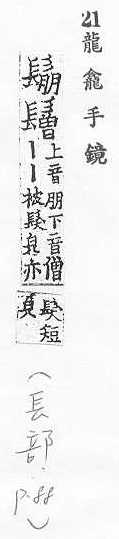 21 龍龕手鏡
鬅鬙
上音朋下音僧
丨丨被髮皃亦
髮短
皃
(長部 p.88)